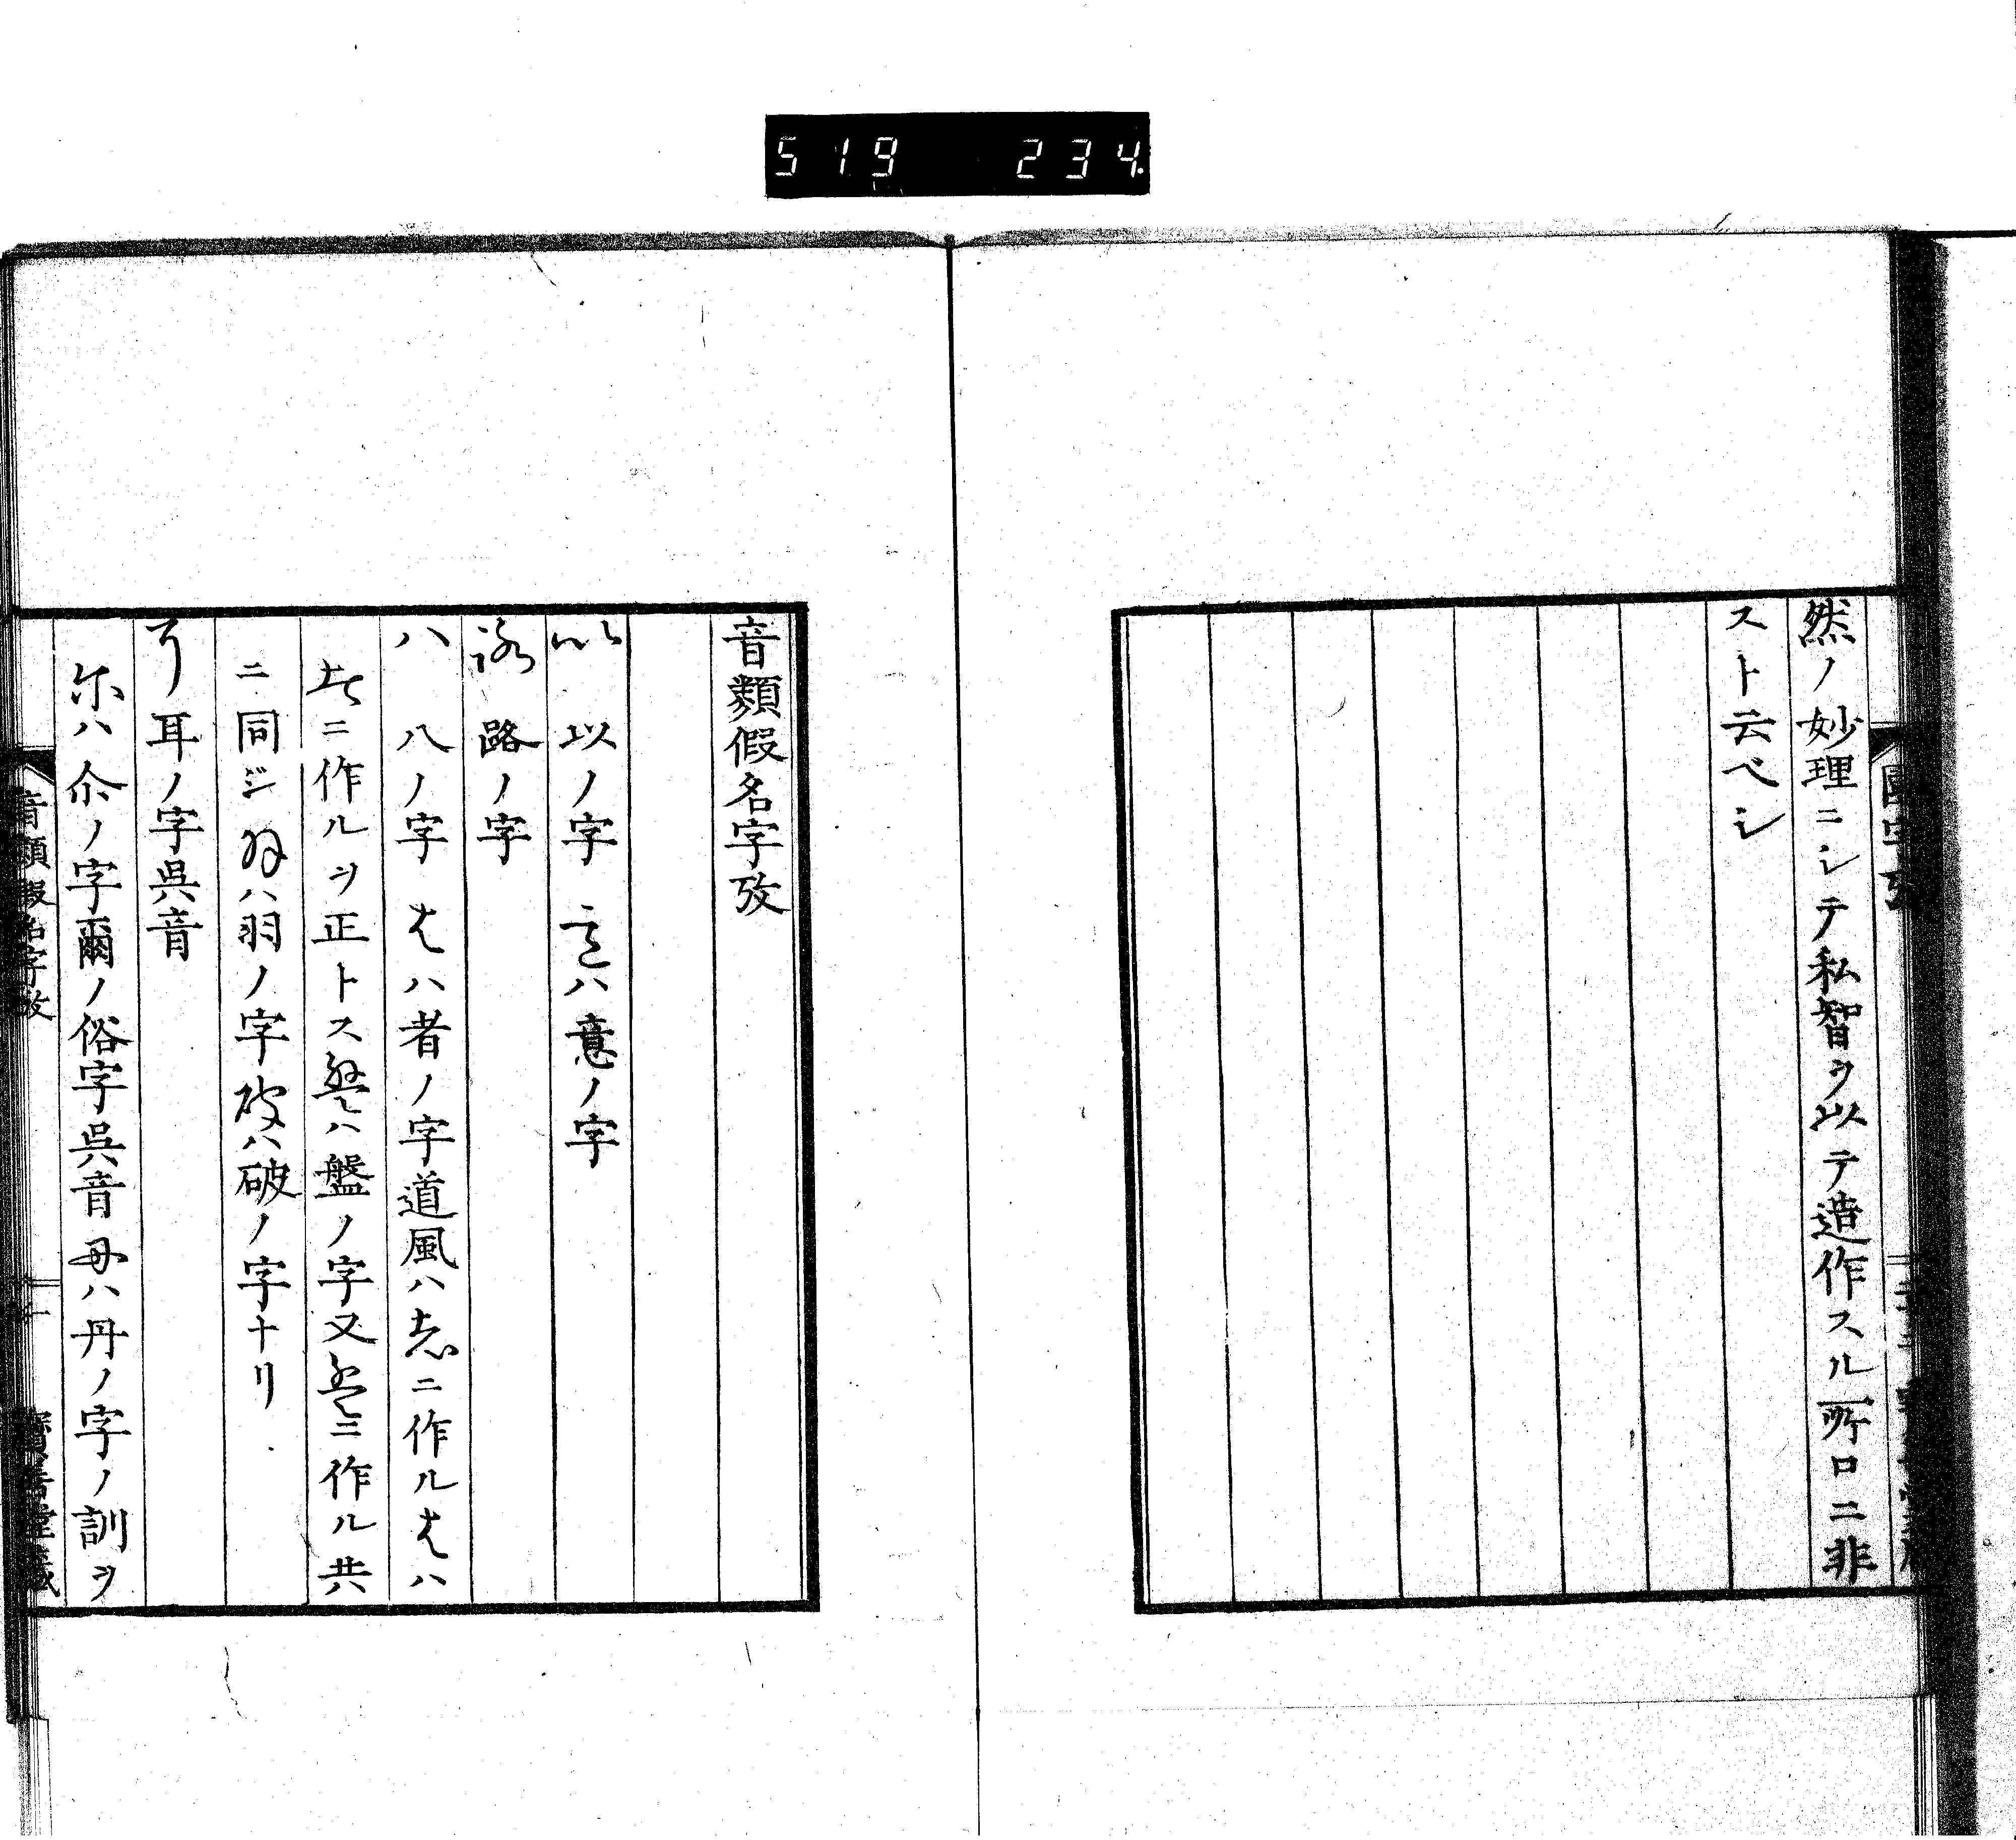 519 234
然ノ妙理ニシテ私智ヲ以テ造作スル所ロニ非
スト云ベシ
音類假名字攷
以 以ノ字 ハ意ノ字
路ノ字
ハ 八ノ字 はハ者ノ字道風ハ ニ作ルはハ
ニ作ルヲ正トス ハ盤ノ字又 ニ作ル共
ニ同ジ ハ羽ノ字破ハ破ノ字ナリ
耳ノ字呉音
尓ハ尒ノ字爾ノ俗字呉音 ハ丹ノ字ノ訓ヲ
音類假名字攷